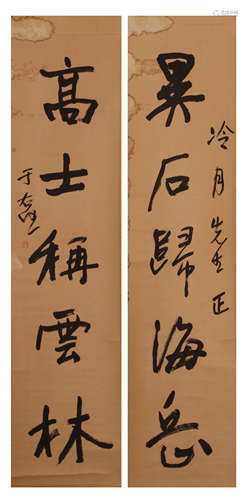 冷月先生正
異石歸海岳
高士稱雲林
于右任